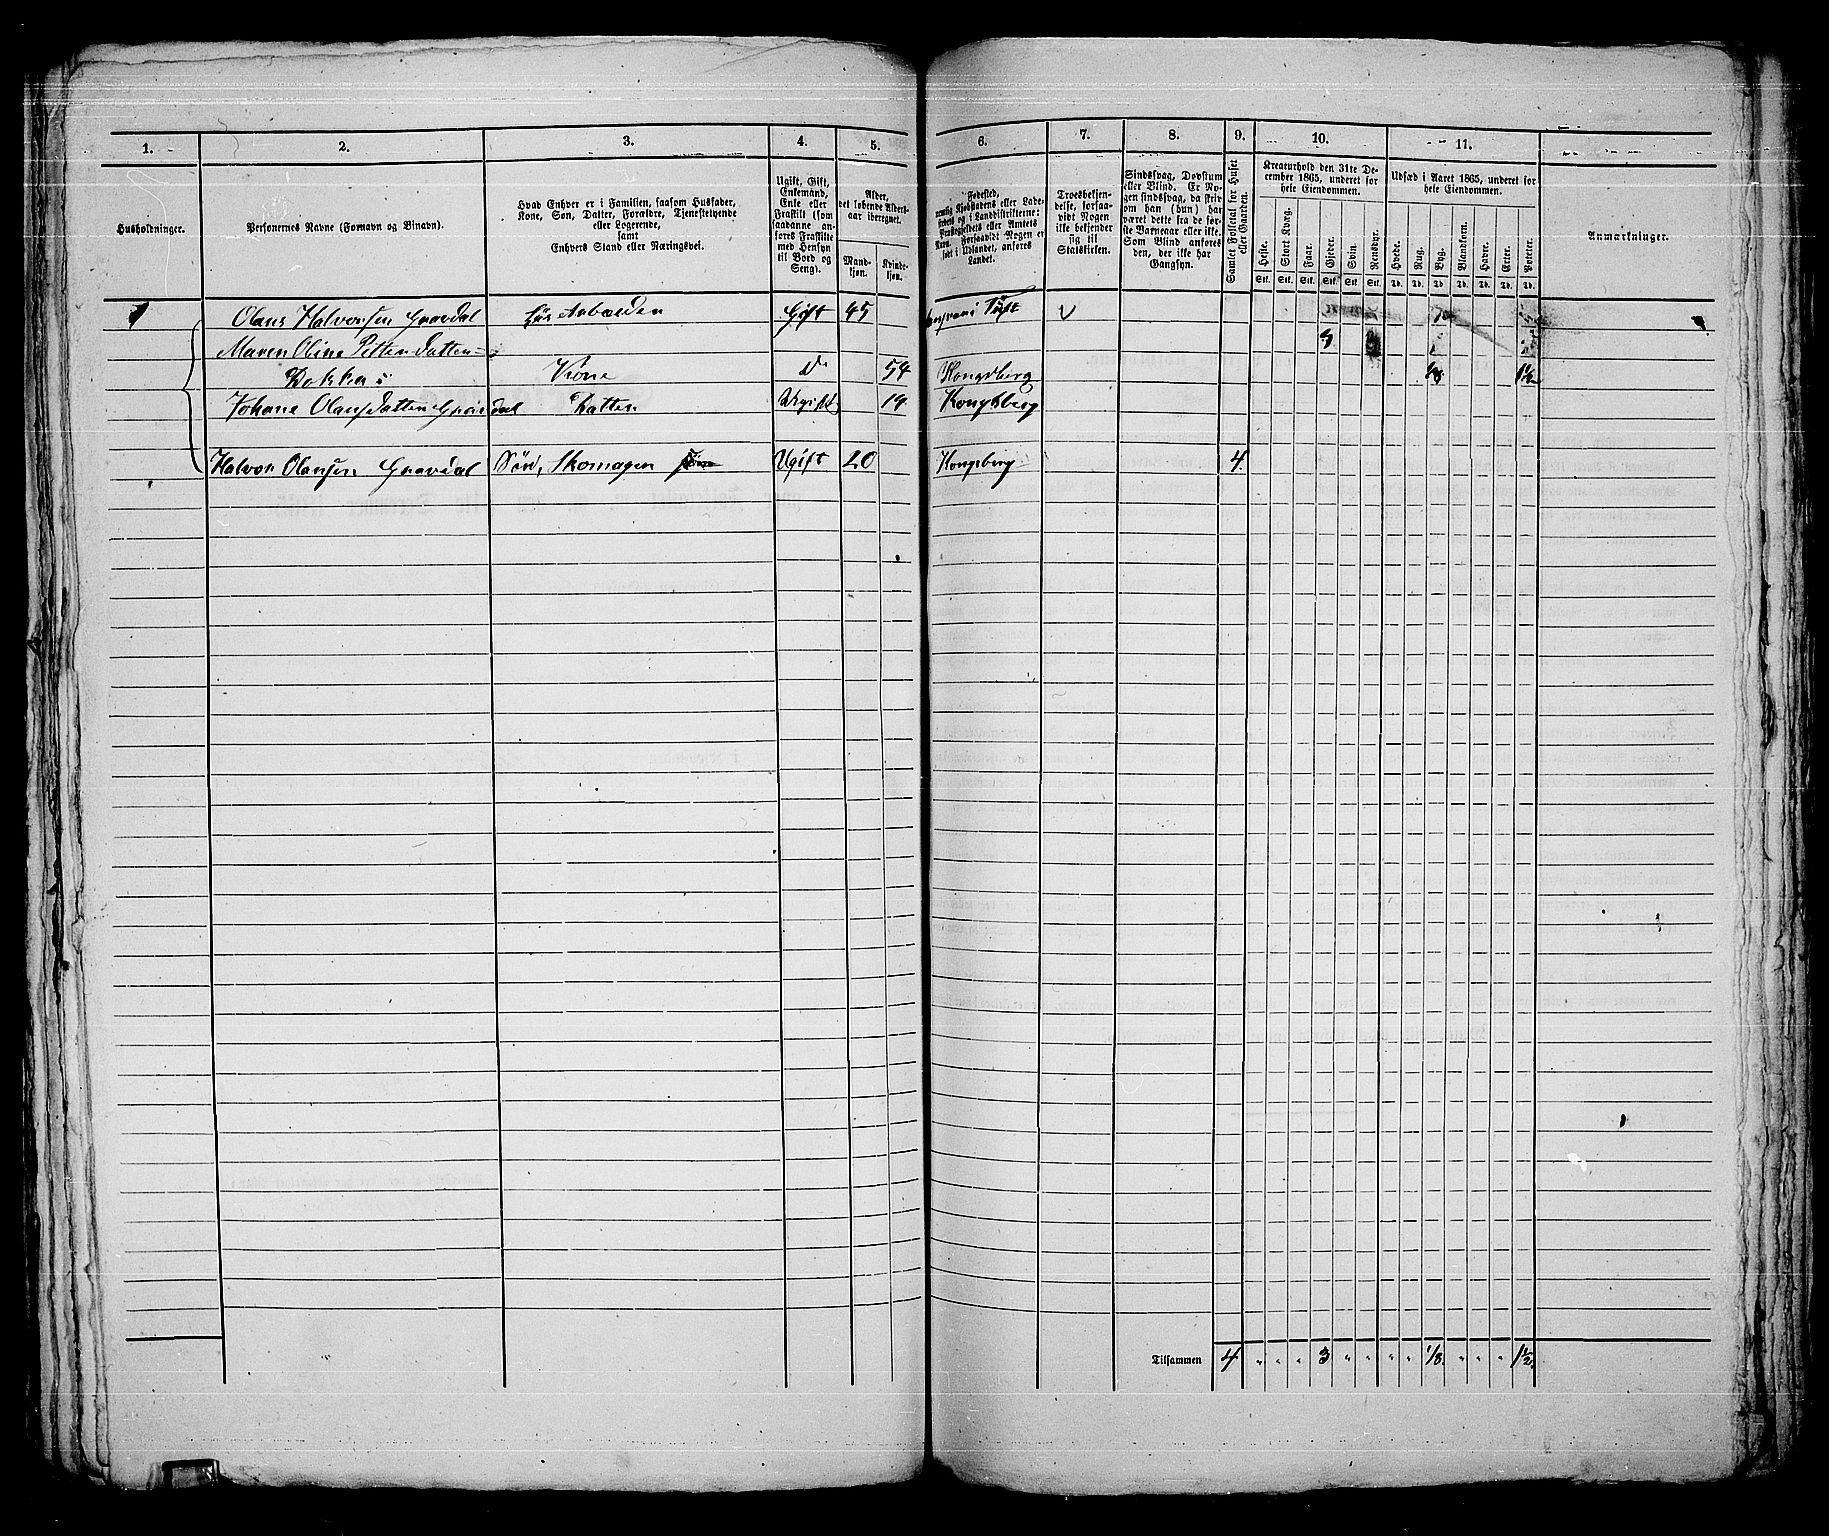 1. 2. 3. 4. 5. 6. 7. 8. 9. 10. 11.
Husholdninger.
Personernes Navne (Fornavn og Binavn).
Hvad Enhver er i Familien, saasom Husfader,
Kone, Søn, Datter, Forældre, Tjenestetyende
eller Logerende,
samt
Enhvers Stand eller Næringsvei.
Ugift, Gift,
Enkemand,
Enke eller
Fraskilt (som
saadanne an-
føres Fraskilte
med Hensyn
til Bord og
Seng).
Alder,
det løbende Alders-
aar iberegnet.
Mand-
kjøn.
Kvinde-
kjøn.
Fødested,
nemlig Kjøbstadens eller Lade-
stedets og i Landdistrikterne:
Præstegjeldets eller Amtets
Navn. Forsaavidt Nogen er
født i Udlandet, anføres
Landet.
Troesbekjen-
delse, forsaa-
vidt Nogen
ikke bekjender
sig til
Statskirken.
Sindssvag, Døvstum
eller Blind. Er No-
gen sindssvag, da skriv
om han (hun) har
været dette fra de før-
ste Barneaar eller ikke.
Som Blind anføres
den, der ikke har
Gangsyn.
Samlet Folketal for Huset
eller Gaarden.
Kreaturhold den 31te De-
cember 1865, underet for
hele Eiendommen.
Heste. Stort Kvæg. Faar. Gjeder. Svin. Rensdyr.
Stk. Stk. Stk. Stk. Stk. Stk.
Udsæd i Aaret 1865, underet for
hele Eiendommen.
Hvede. Rug. Byg. Blandkorn. Havre. Erter. Poteter.
Td. Td. Td. Td. Td. Td. Td.
Anmærkninger.
1 Olaus Halvorsen Gravdal Gift 45 V
Maren Oline Pettersdatter 3
Kone do 54 Kongsberg 1/8 1 1/2
Johane Olausdatter Gravdal Datter Ugift 19 Kongsberg
Halvor Olausen Gravdal Søn, Skomager Ugift 20 Kongsberg 4
Tilsammen 4 " " " 3 " " " " 1/8. " " " 1 1/2.